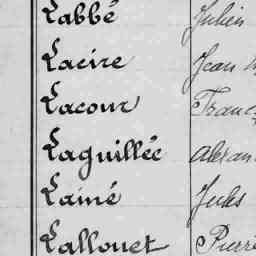 Labbé Julien
Lacire Jean
Lacour
Laguillée
Lainé Jules
Lallouet Pierre